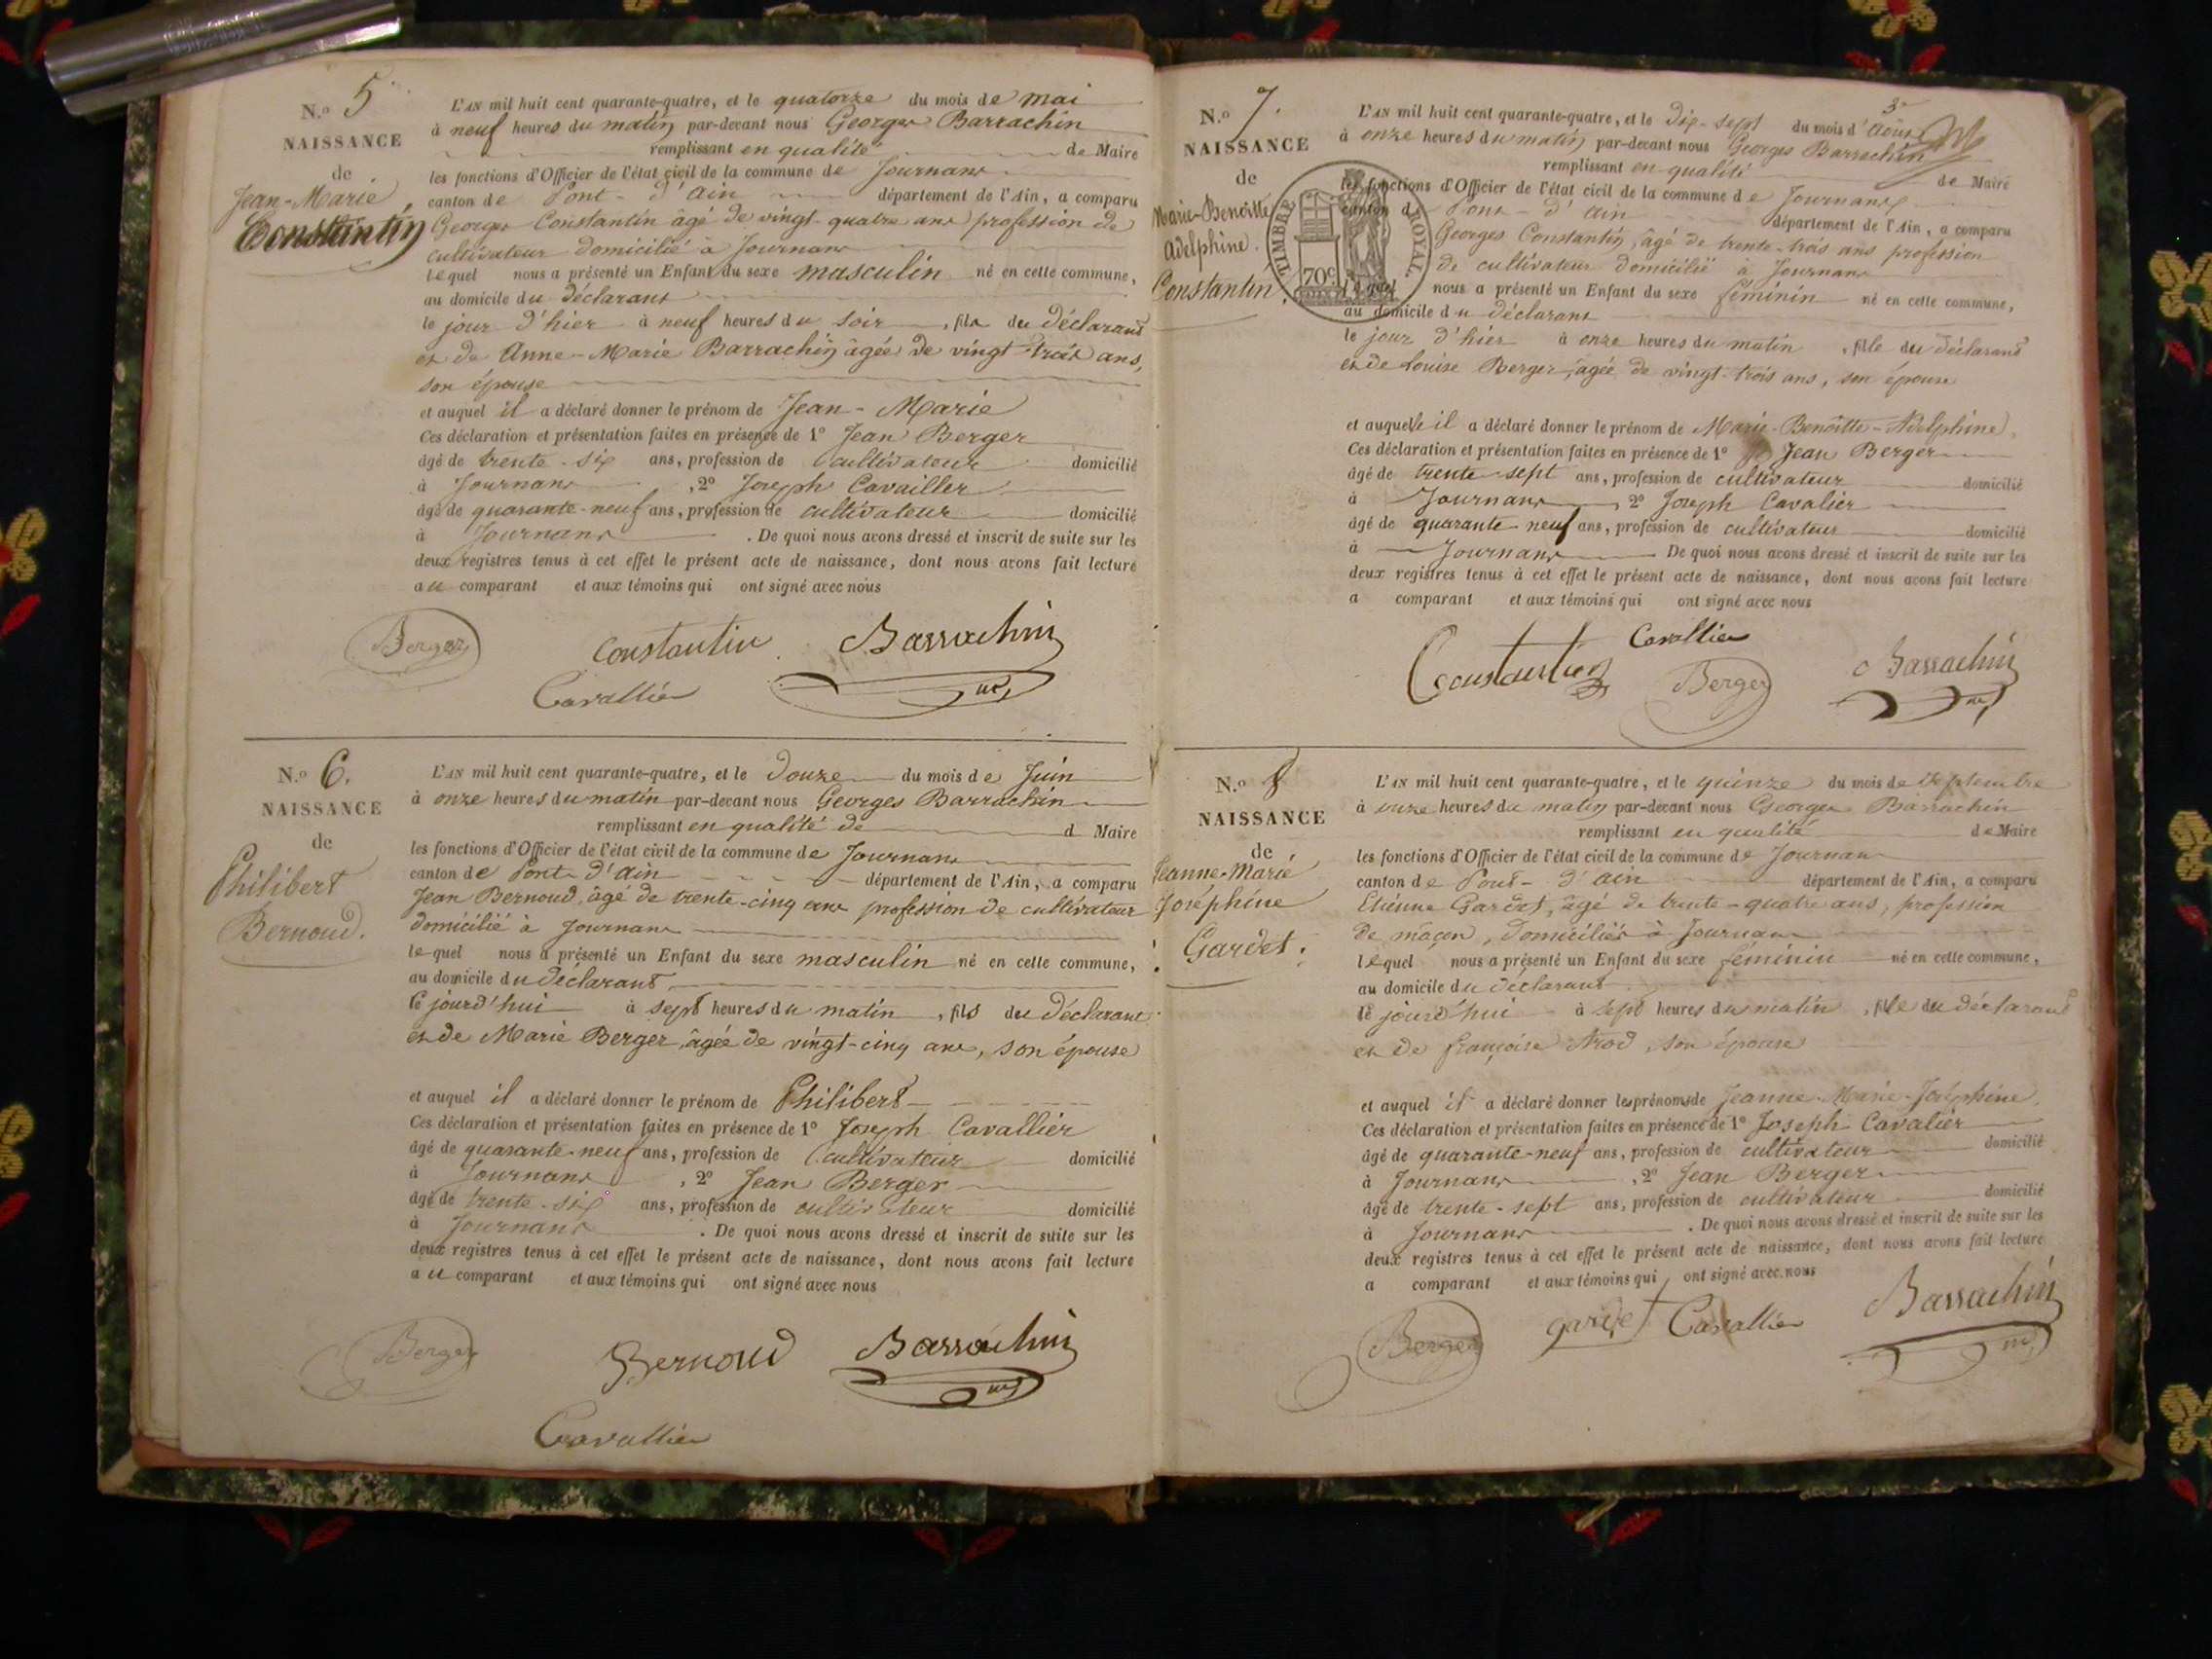 N.o 5
NAISSANCE
de
Jean-Marie
Constantin
L'AN mil huit cent quarante-quatre, et le quatorze du mois de mai
à neuf heures du matin par-devant nous Georges Barrachin
remplissant en qualité de Maire
les fonctions d'Officier de l'état civil de la commune de Journans
canton de Pont-d'ain département de l'Ain, a comparu
Georges Constantin âgé de vingt-quatre ans profession de
cultivateur domicilié à Journans
lequel nous a présenté un Enfant du sexe masculin né en cette commune,
au domicile du déclarant
le jour d'hier à neuf heures du soir, fils du déclarant
et de Anne-Marie Barrachin âgée de vingt-trois ans,
son épouse
et auquel il a déclaré donner le prénom de Jean-Marie
Ces déclaration et présentation faites en présence de 1o Jean Berger
âgé de trente-six ans, profession de cultivateur domicilié
à Journans, 2o Joseph Cavailler
âgé de quarante-neuf ans, profession de cultivateur domicilié
à Journans. De quoi nous avons dressé et inscrit de suite sur les
deux registres tenus à cet effet le présent acte de naissance, dont nous avons fait lecture
au comparant et aux témoins qui ont signé avec nous
Berger Constantin Barrachin
Cavallier
N.o 6.
NAISSANCE
de
Philibert
Bernoud.
L'AN mil huit cent quarante-quatre, et le douze du mois de Juin
à onze heures du matin par-devant nous Georges Barrachin
remplissant en qualité de d Maire
les fonctions d'Officier de l'état civil de la commune de Journans
canton de Pont-d'ain département de l'Ain, a comparu
Jean Bernoud, âgé de trente-cinq ans profession de cultivateur
domicilié à Journans
lequel nous a présenté un Enfant du sexe masculin né en cette commune,
au domicile du déclarant,
Ce jourd'hui à sept heures du matin, fils du déclarant
et de Marie Berger, âgée de vingt-cinq ans, son épouse
et auquel il a déclaré donner le prénom de Philibert
Ces déclaration et présentation faites en présence de 1o Joseph Cavallier
âgé de quarante-neuf ans, profession de cultivateur domicilié
à Journans, 2o Jean Berger
âgé de trente-six ans, profession de cultivateur domicilié
à Journans. De quoi nous avons dressé et inscrit de suite sur les
deux registres tenus à cet effet le présent acte de naissance, dont nous avons fait lecture
au comparant et aux témoins qui ont signé avec nous
Berger Bernoud Barrachin
Cavallier
3e
N.o 7.
NAISSANCE
de
Marie-Benoitte
Adelphine.
Constantin.
TIMBRE ROYAL
70c
L'AN mil huit cent quarante-quatre, et le dix-sept du mois d'août
à onze heures du matin par-devant nous Georges Barrachin
remplissant en qualité de Maire
les fonctions d'Officier de l'état civil de la commune de Journans
canton d Pont-d'ain département de l'Ain, a comparu
Georges Constantin, âgé de trente-trois ans profession
de cultivateur domicilié à Journans
lequel nous a présenté un Enfant du sexe féminin né en cette commune,
au domicile du déclarant
le jour d'hier à onze heures du matin, fille du déclarant
et de Louise Berger, âgée de vingt-trois ans, son épouse
et auquelle il a déclaré donner le prénom de Marie-Benoitte-Adelphine.
Ces déclaration et présentation faites en présence de 1o Jean Berger
âgé de trente-sept ans, profession de cultivateur domicilié
à Journans, 2o Joseph Cavalier
âgé de quarante-neuf ans, profession de cultivateur domicilié
à Journans De quoi nous avons dressé et inscrit de suite sur les
deux registres tenus à cet effet le présent acte de naissance, dont nous avons fait lecture
a comparant et aux témoins qui ont signé avec nous
Constantin Cavallier Berger Barrachin
N.o 8
NAISSANCE
de
Jeanne-Marie
Joséphine
Gardet.
L'AN mil huit cent quarante-quatre, et le quinze du mois de septembre
à onze heures du matin par-devant nous Georges Barrachin
remplissant en qualité de Maire
les fonctions d'Officier de l'état civil de la commune de Journans
canton de Pont-d'ain département de l'Ain, a comparu
Etienne Gardet, âgé de trente-quatre ans, profession
de maçon, domicilié à Journans
lequel nous a présenté un Enfant du sexe féminin né en cette commune,
au domicile du déclarant
ce jourd'hui à sept heures du matin, fille du déclarant
et de françoise, son épouse
et auquel il a déclaré donner les prénoms de Jeanne-Marie-Joséphine.
Ces déclaration et présentation faites en présence de 1o Joseph Cavalier
âgé de quarante-neuf ans, profession de cultivateur domicilié
à Journans, 2o Jean Berger
âgé de trente-sept ans, profession de cultivateur domicilié
à Journans. De quoi nous avons dressé et inscrit de suite sur les
deux registres tenus à cet effet le présent acte de naissance, dont nous avons fait lecture
a comparant et aux témoins qui ont signé avec nous
Berger gardet Cavallier Barrachin